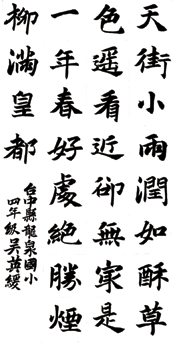 天街小雨潤如酥草
色遙看近卻無㝡是
一年春好處絕勝煙
柳滿皇都
台中縣龍泉國小
四年級吳英緩